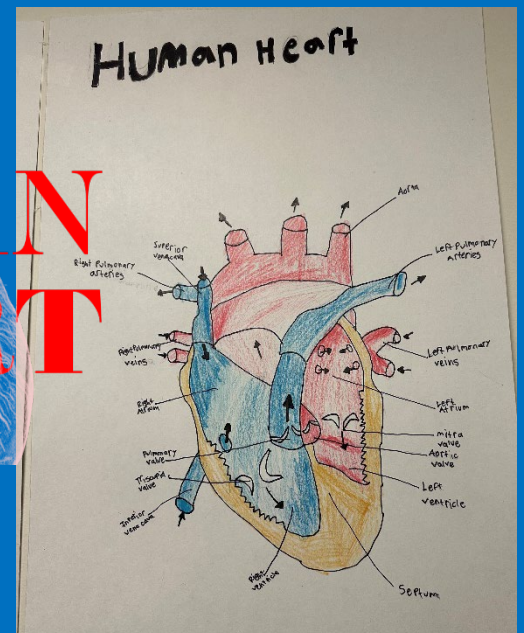 Human Heart
N
T
Aorta
Superior
vena cava
Right Pulmonary
arteries
Left Pulmonary
Arteries
Right Pulmonary
veins
Left Pulmonary
veins
Right
Atrium
Left
Atrium
Pulmonary
valve
mitra
valve
Aortic
valve
Tricuspid
valve
Left
ventricle
Inferior
vena cava
Right
ventricle
Septum